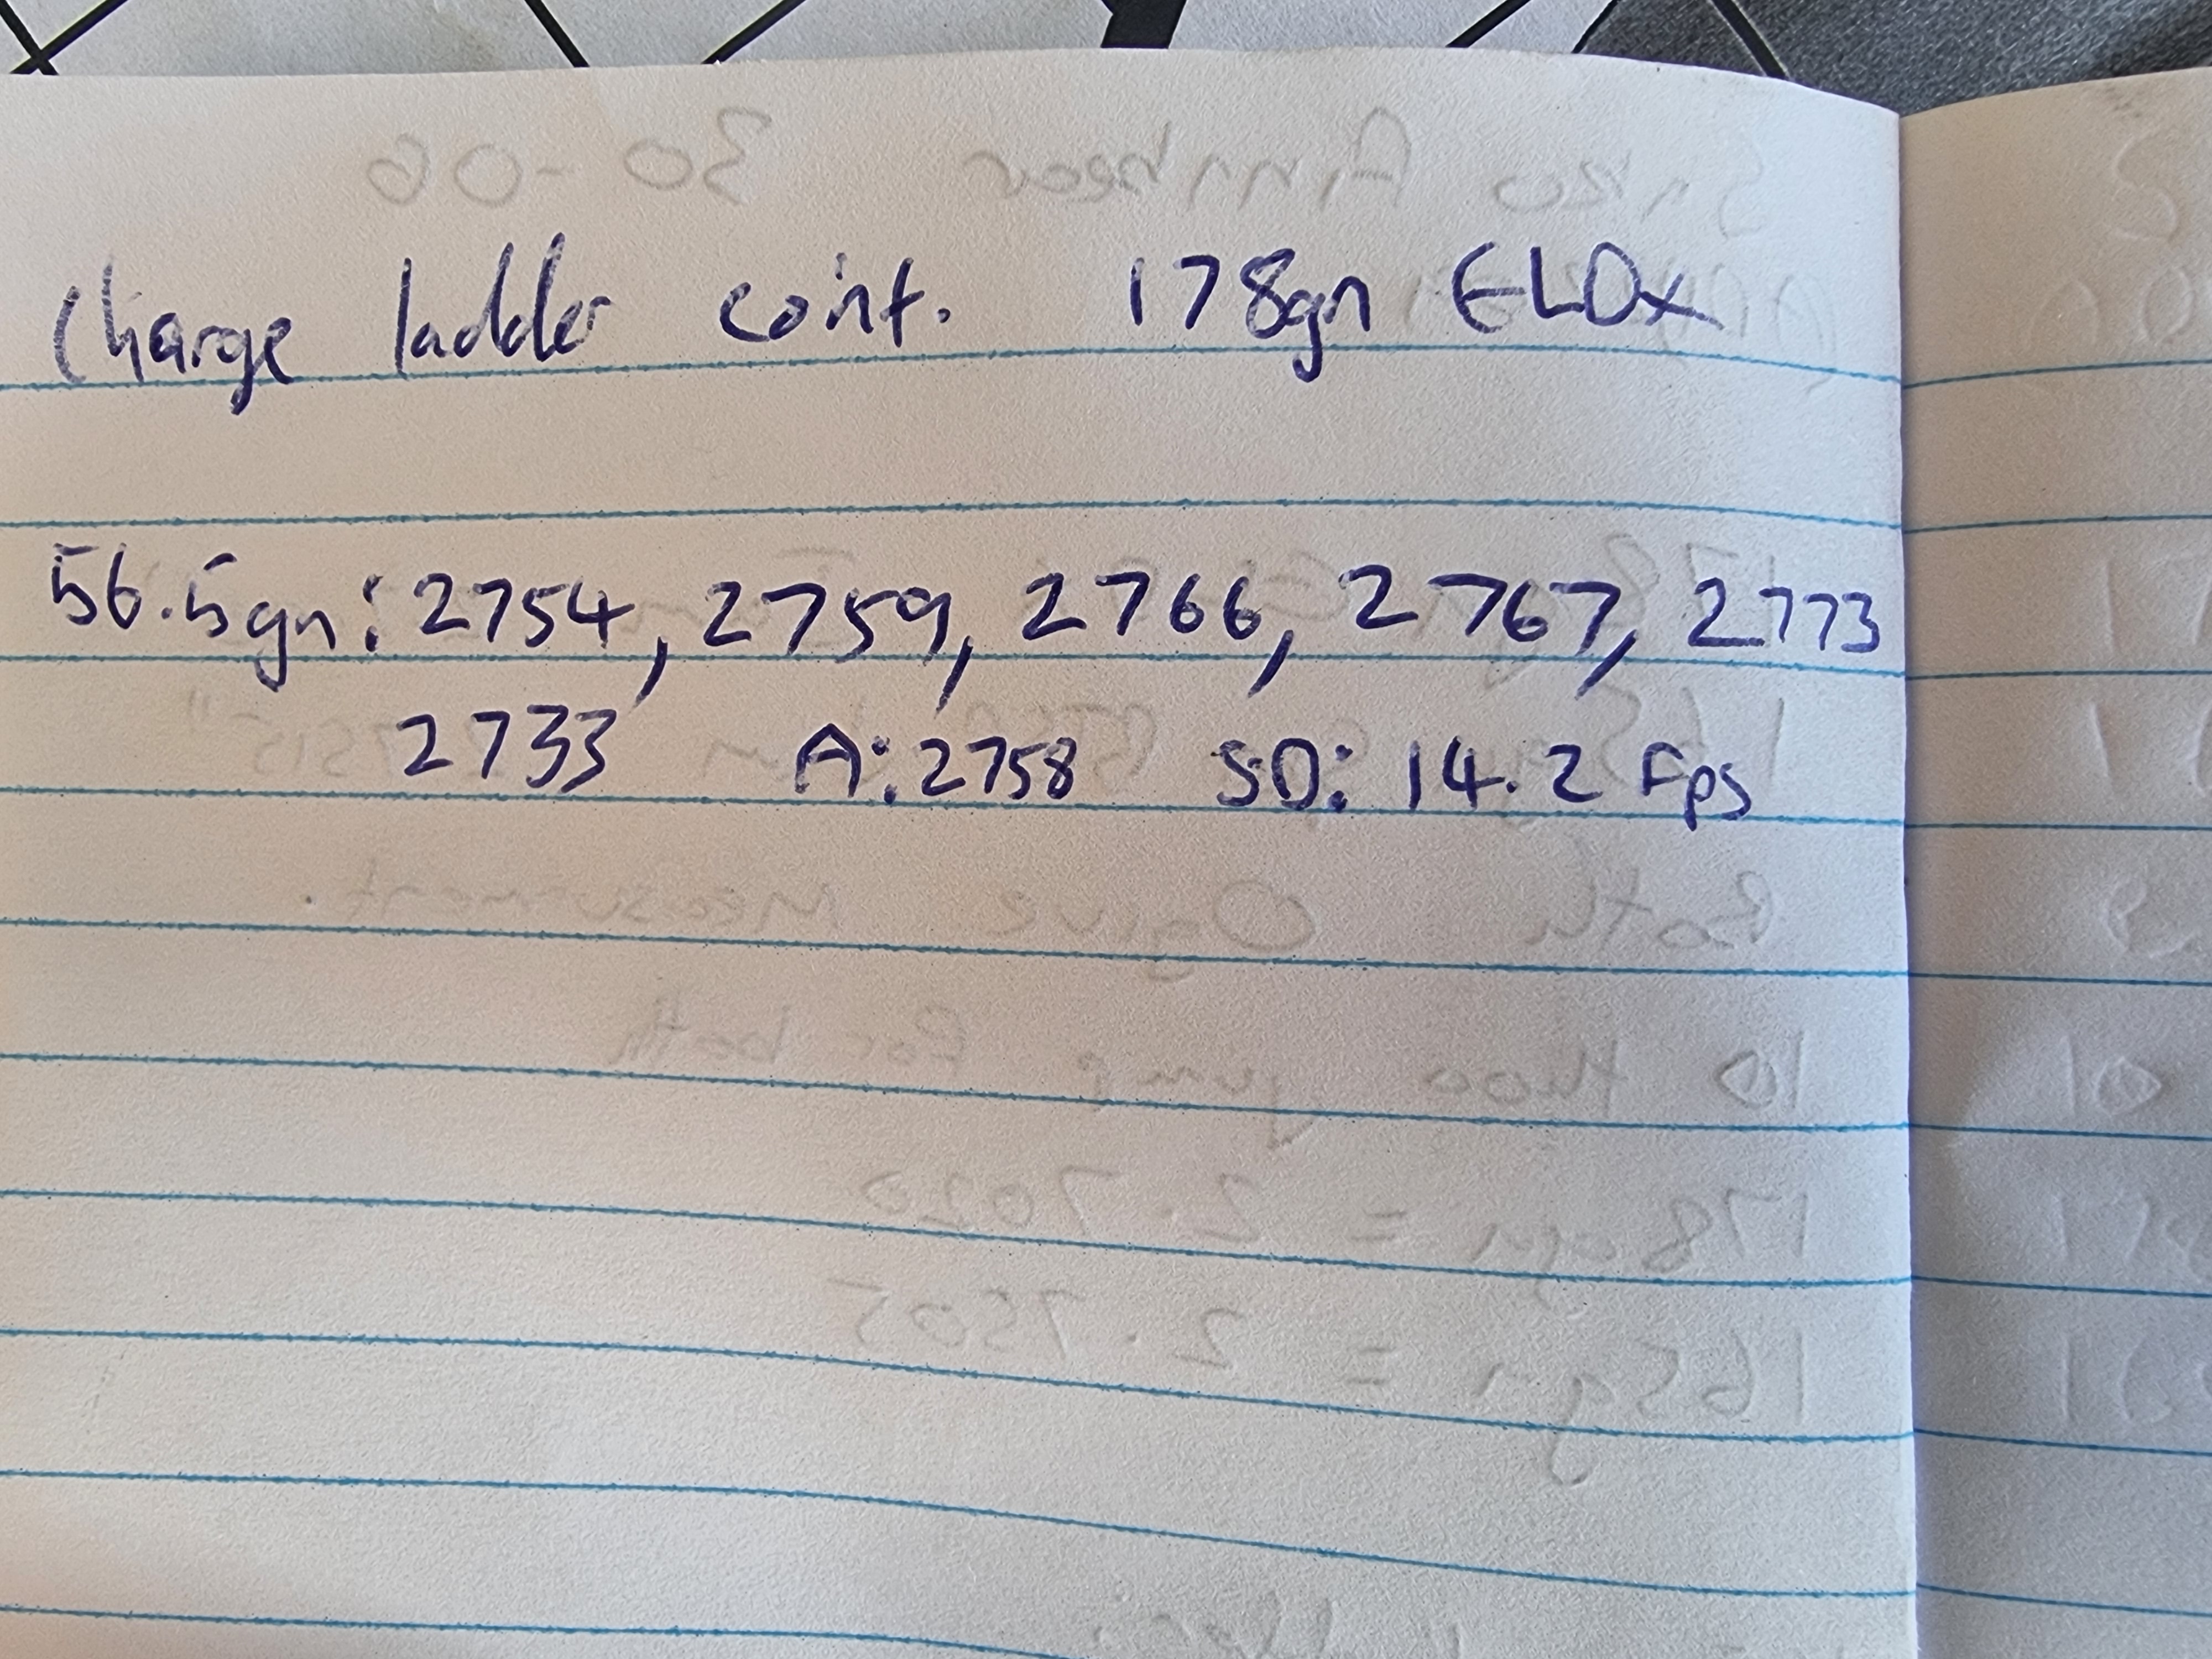 Charge ladder coint. 178gn ELDx
56.5gn: 2754, 2759, 2766, 2767, 2773
2733 A: 2758 SD: 14.2 Fps